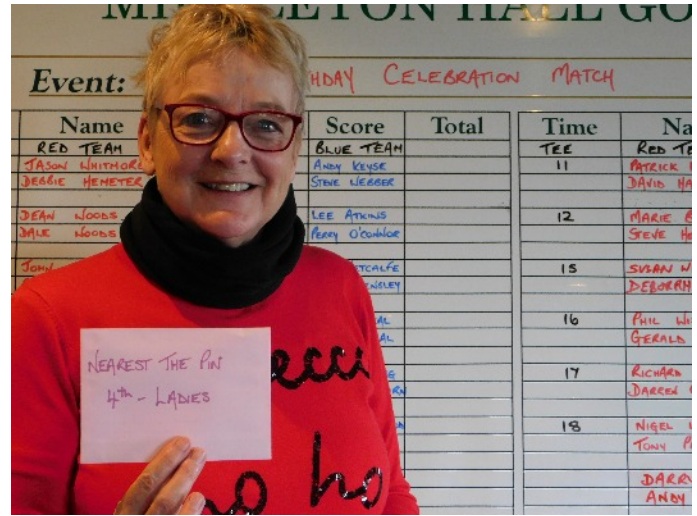 TON HALL GO
Event:
HDAY CELEBRATION MATCH
Name Score Total Time Na
RED TEAM BLUE TEAM TEE RED TE
JASON WHITMOR ANDY KEYSE 11 PATRICK
DEBBIE HEMETER STEVE WEBBER DAVID HA
DEAN WOODS LEE ATKINS 12 MARIE
DALE WOODS PERRY O'CONNOR STEVE HO
JOHN TCALFE 15 SUSAN W
NSLEY DEBORAH
AL 16 PHIL WI
AL GERALD
17 RICHARD
DARREN
18 NIGEL
TONY P
DARR
ANDY
NEAREST THE PIN
4th - LADIES
ecc
o ho